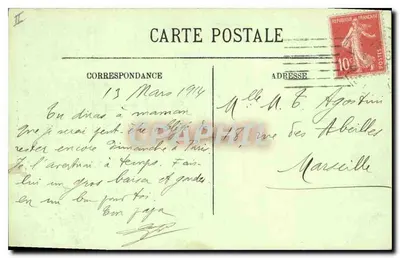 II
CARTE POSTALE
REPUBLIQUE FRANÇAISE
10
POSTES
CORRESPONDANCE
ADRESSE
13 Mars 1914
Tu diras à maman
que je serai peut-être
rester encore Dimanche à Paris
Je l'avertirai à temps. Fais-
lui un gros baiser et gardes
en un bon pour toi.
Ton papa
Melle M. T. Agostini
78 rue des Abeilles
Marseille
CPARAMA